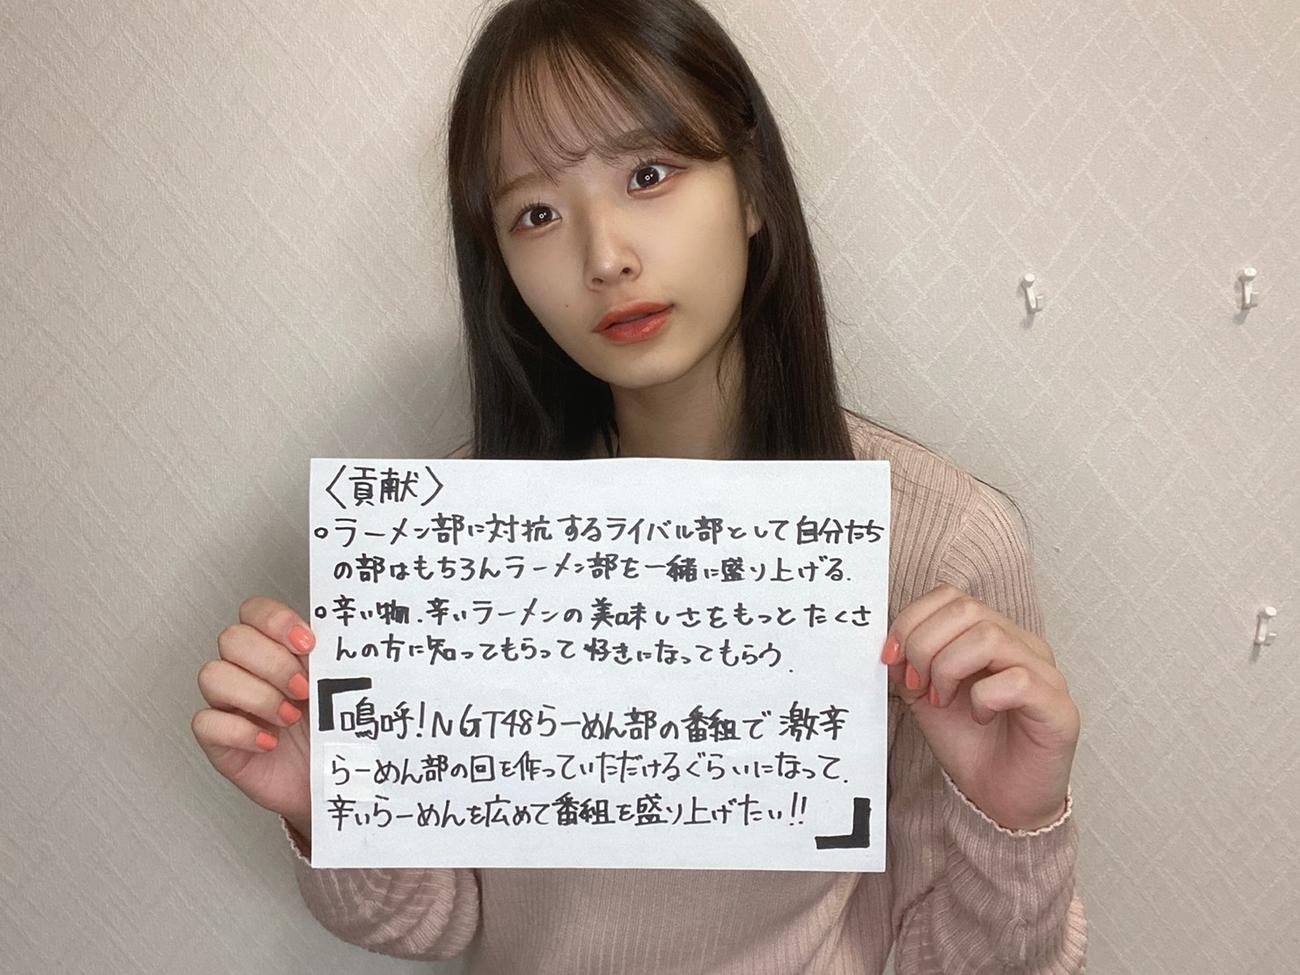 〈貢献〉
○ラーメン部に対抗するライバル部として自分たち
の部はもちろんラーメン部を一緒に盛り上げる.
○辛い物.辛いラーメンの美味しさをもっとたくさ
んの方に知ってもらって好きになってもらう.
『嗚呼!NGT48らーめん部の番組で激辛
らーめん部の回を作っていただけるぐらいになって.
辛いらーめんを広めて番組を盛り上げたい!!』